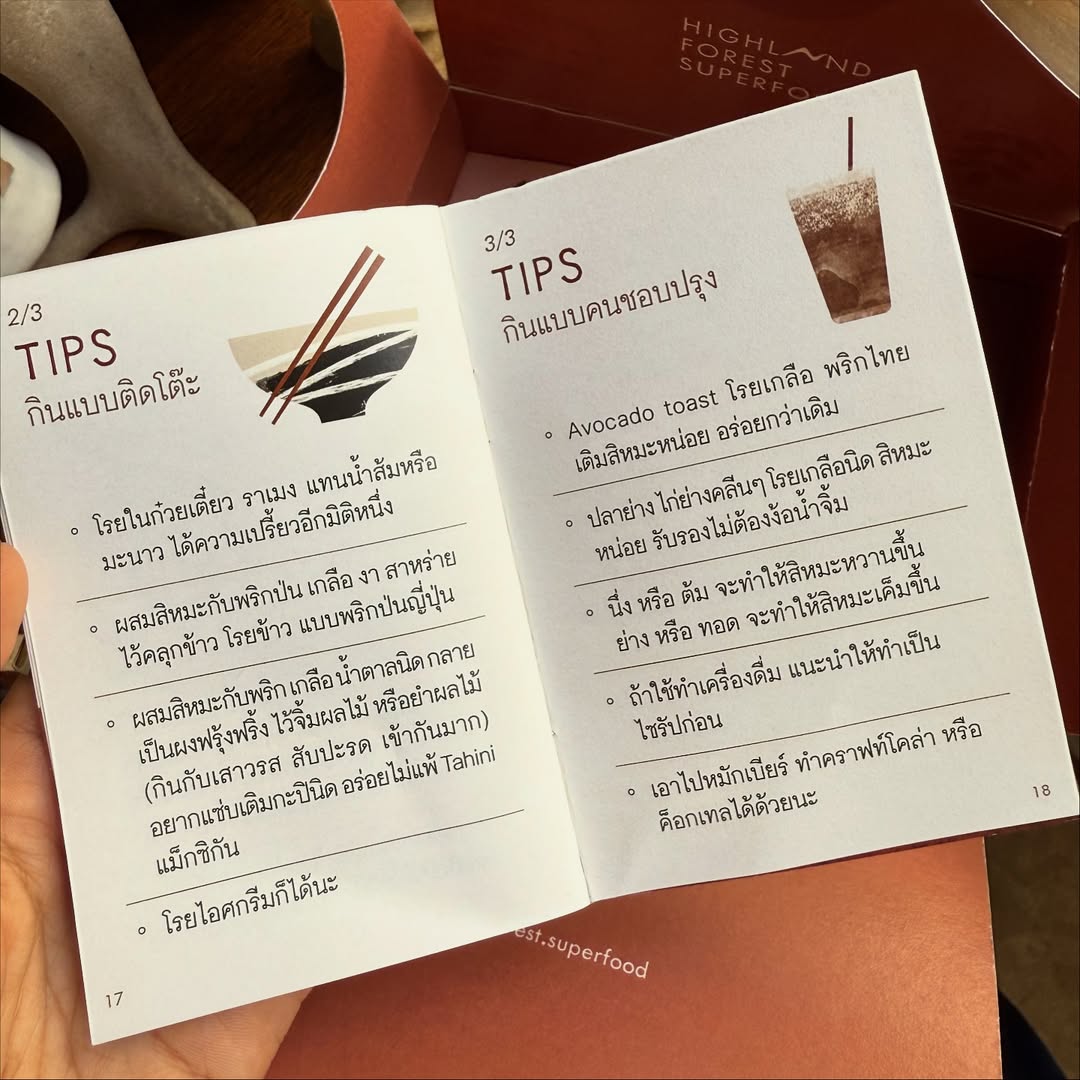 HIGHLAND
FOREST
2/3
TIPS
กินแบบติดโต๊ะ
โรยในก๋วยเตี๋ยว ราเมง แทนน้ำส้มหรือ
มะนาว ได้ความเปรี้ยวอีกมิติหนึ่ง
ผสมสิหมะกับพริกป่น เกลือ งา สาหร่าย
ไว้คลุกข้าว โรยข้าว แบบพริกป่นญี่ปุ่น
ผสมสิหมะกับพริก เกลือ น้ำตาลนิด กลาย
เป็นผงฟรุ้งฟริ้ง ไว้จิ้มผลไม้ หรือยำผลไม้
(กินกับเสาวรส สับปะรด เข้ากันมาก)
อยากแซ่บเติมกะปินิด อร่อยไม่แพ้ Tahini
แม็กซิกัน
โรยไอศกรีมก็ได้นะ
17
3/3
TIPS
กินแบบคนชอบปรุง
Avocado toast โรยเกลือ พริกไทย
เติมสิหมะหน่อย อร่อยกว่าเดิม
ปลาย่าง ไก่ย่างคลีนๆ โรยเกลือนิด สิหมะ
หน่อย รับรองไม่ต้องง้อน้ำจิ้ม
นึ่ง หรือ ต้ม จะทำให้สิหมะหวานขึ้น
ย่าง หรือ ทอด จะทำให้สิหมะเค็มขึ้น
ถ้าใช้ทำเครื่องดื่ม แนะนำให้ทำเป็น
ไซรัปก่อน
เอาไปหมักเบียร์ ทำคราฟท์โคล่า หรือ
ค็อกเทลได้ด้วยนะ
18
est.superfood